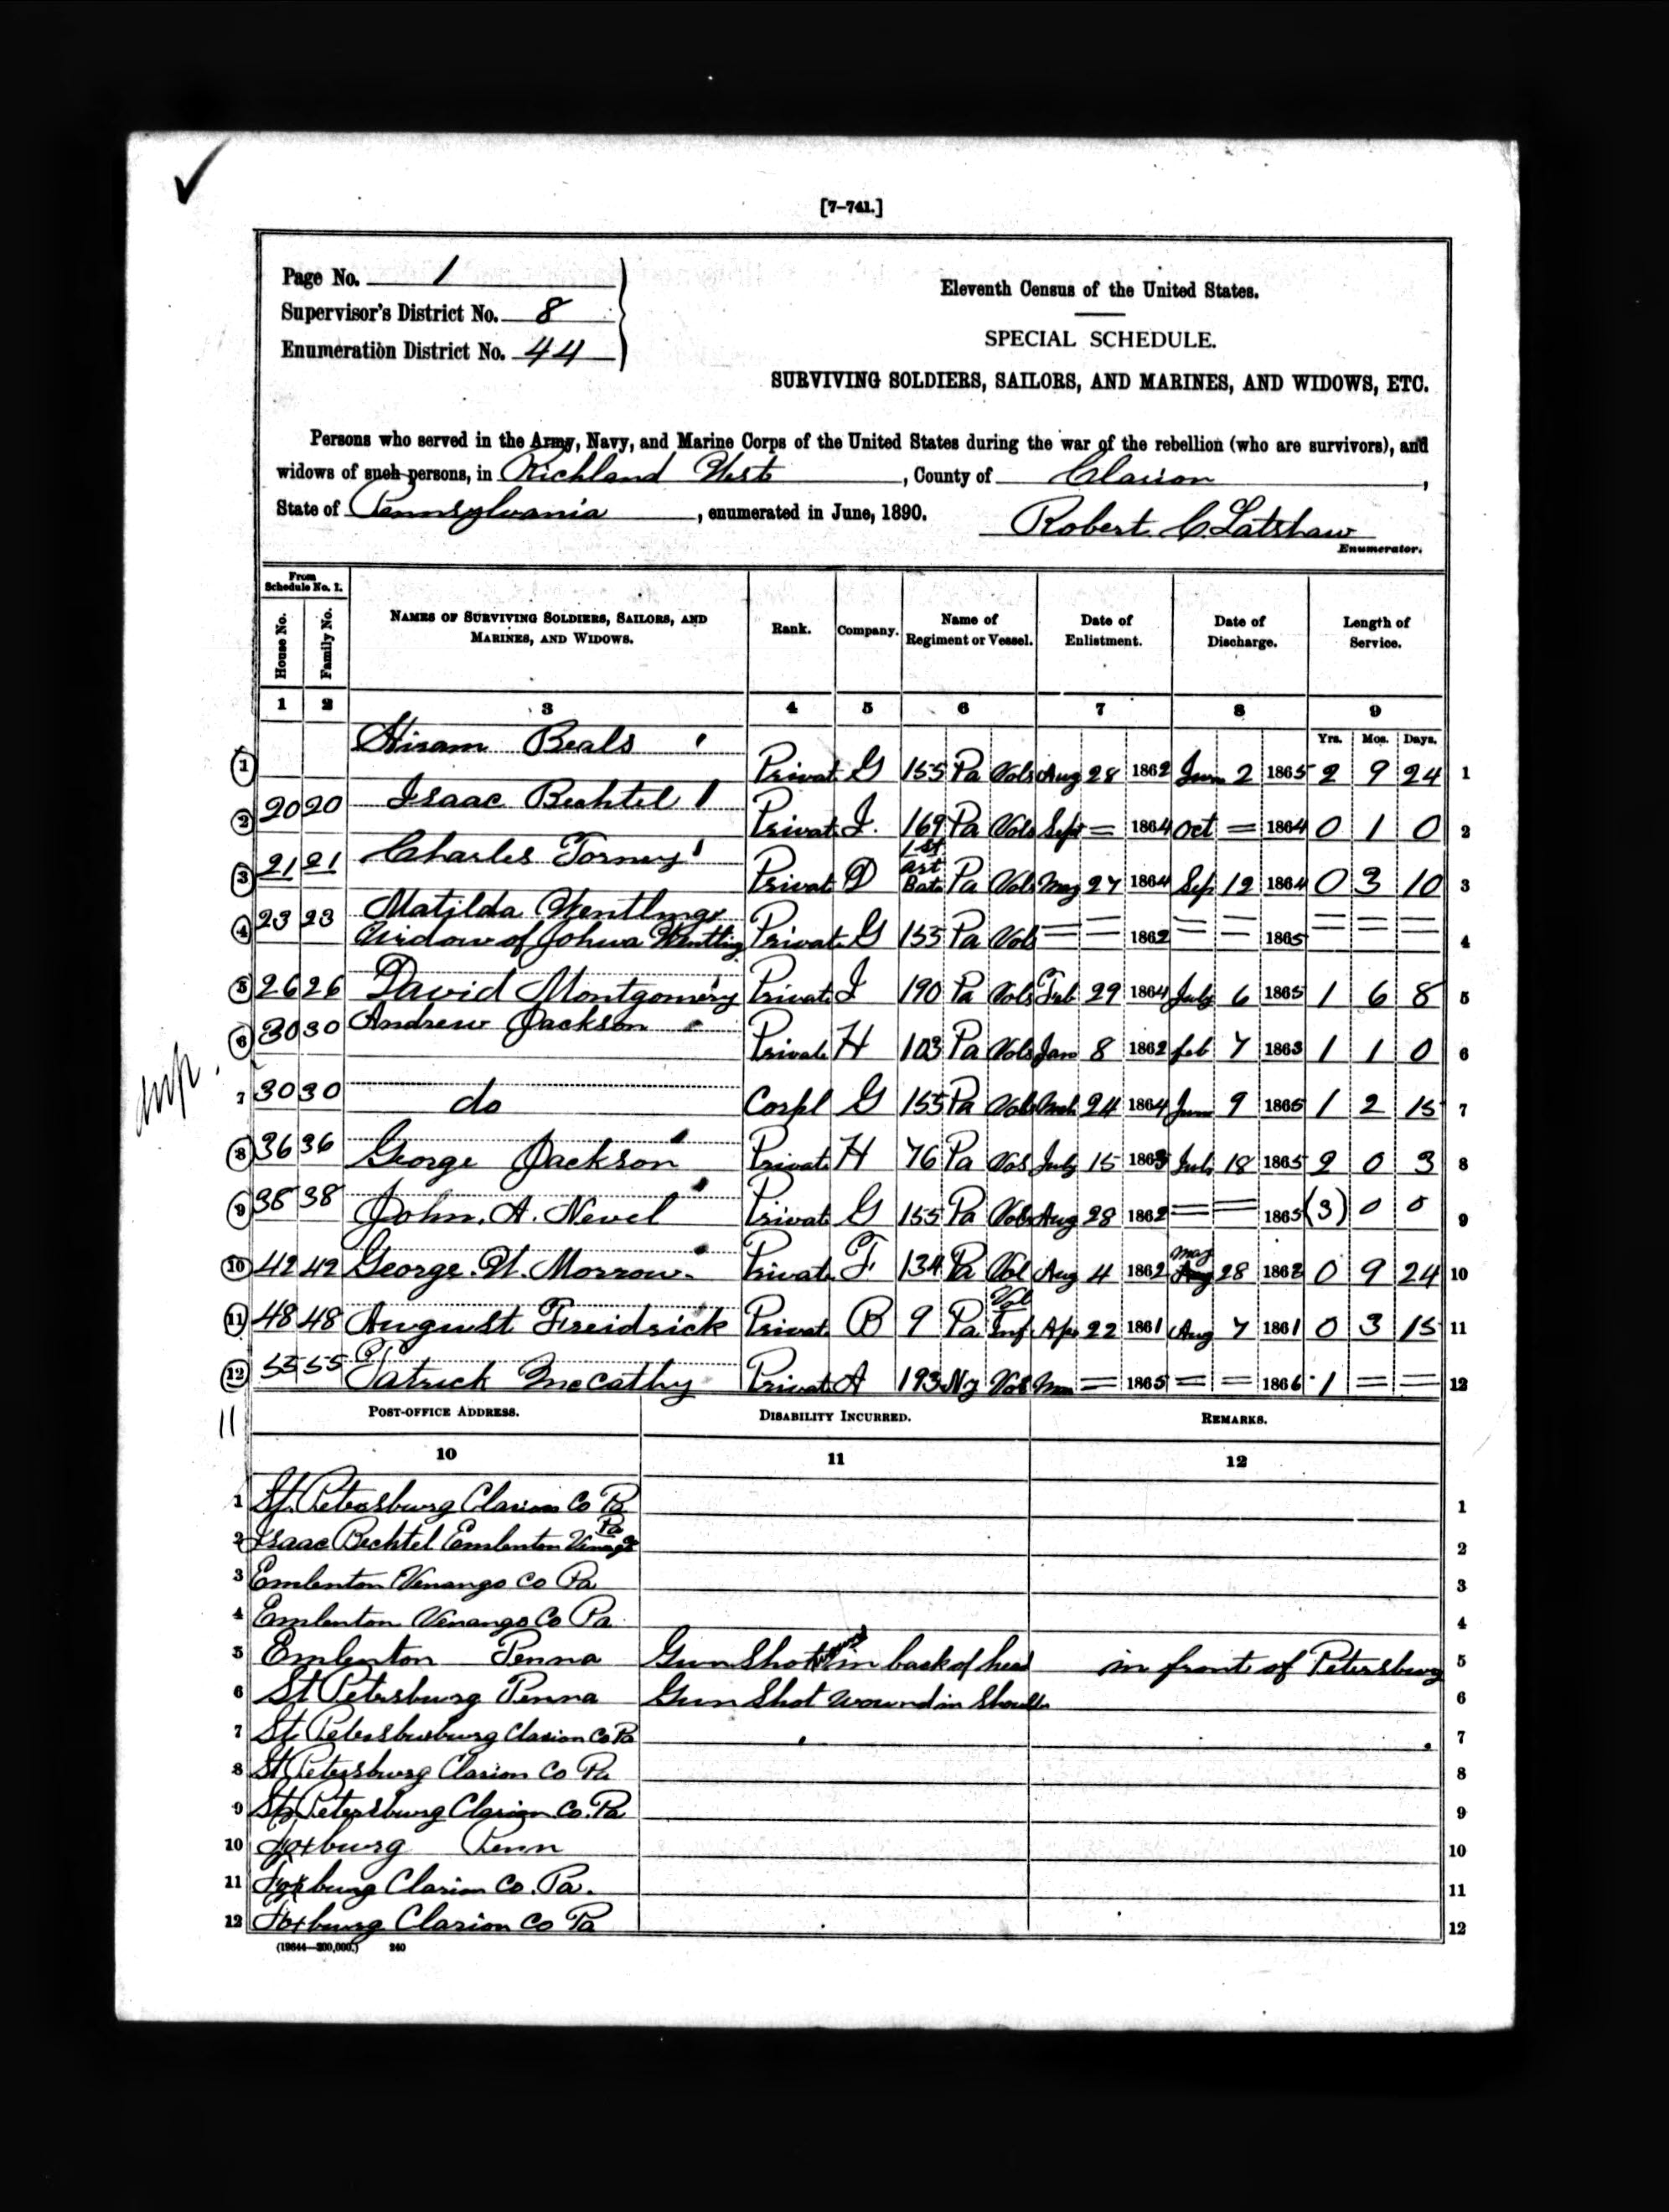 [7-741.]
Page No. 1
Supervisor's District No. 8
Enumeration District No. 44
Eleventh Census of the United States.
SPECIAL SCHEDULE.
SURVIVING SOLDIERS, SAILORS, AND MARINES, AND WIDOWS, ETC.
Persons who served in the Army, Navy, and Marine Corps of the United States during the war of the rebellion (who are survivors), and
widows of such persons, in Richland West, County of Clarion,
State of Pennsylvania, enumerated in June, 1890. Robert C. Latshaw
Enumerator.
From Schedule No. 1.
House No. Family No. NAMES OF SURVIVING SOLDIERS, SAILORS, AND MARINES, AND WIDOWS. Rank. Company. Name of Regiment or Vessel. Date of Enlistment. Date of Discharge. Length of Service.
1 2 3 4 5 6 7 8 9
Yrs. Mos. Days.
1 Hiram Beals Privat G 155 Pa Vols Aug 28 1862 Jun 2 1865 2 9 24 1
2 20 20 Isaac Bechtel Privat I. 169 Pa Vols Sept = 1864 Oct = 1864 0 1 0 2
3 21 21 Charles Torney Privat D 1st Art Bat Pa Vols May 27 1864 Sep 12 1864 0 3 10 3
4 23 23 Matilda Wentling
Widow of Johua Wentling Privat G 155 Pa Vols = = 1862 = = 1865 = = = 4
5 26 26 David Montgomery Private I 190 Pa Vols Feb 29 1864 July 6 1865 1 6 8 5
6 30 30 Andrew Jackson Private H 103 Pa Vols Jan 8 1862 feb 7 1863 1 1 0 6
7 30 30 do Corpl G 155 Pa Vols Mch 24 1864 Jun 9 1865 1 2 15 7
8 36 36 George Jackson Private H 76 Pa Vos July 15 1863 July 18 1865 2 0 3 8
9 38 38 John. A. Nevel Privat G 155 Pa Vols Aug 28 1862 = = 1865 (3) 0 0 9
10 42 42 George. W. Morrow. Private F. 134 Pa Vol Aug 4 1862 May 28 1863 0 9 24 10
11 48 48 August Freidrick Privat B 9 Pa Vol Inf Apr 22 1861 Aug 7 1861 0 3 15 11
12 55 55 Patrick McCathy Privat A 193 Ny Vol = 1865 = = 1866 1 = = 12
11
POST-OFFICE ADDRESS. DISABILITY INCURRED. REMARKS.
10 11 12
1 St. Petersburg Clarion Co Pa 1
2 Isaac Bechtel Emlenton Venago Pa 2
3 Emlenton Venango Co Pa 3
4 Emlenton Venango Co Pa 4
5 Emlenton Penna Gun Shot wound in back of head in front of Petersburg 5
6 St Petersburg Penna Gun Shot wound in Shoulder 6
7 St. Petersbusburg Clarion Co Pa 7
8 St Petersburg Clarion Co Pa 8
9 St Petersburg Clarion Co. Pa 9
10 Foxburg Penn 10
11 Foxburg Clarion Co. Pa. 11
12 Foxburg Clarion Co Pa 12
(19644—300,000.) 240